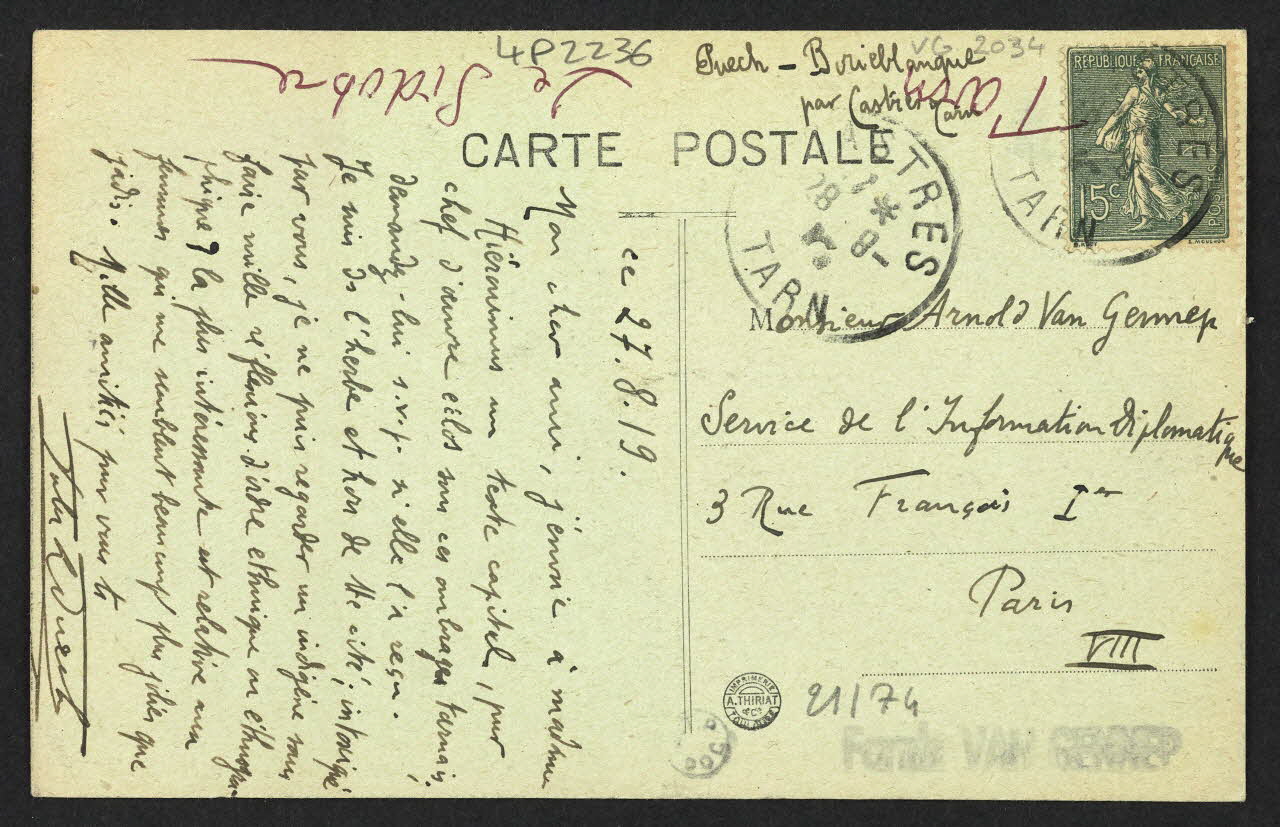 4P2236
VG 2034
Puech - Borieblanque
par Castres
Tarn
Le Sidobre
Tarn
CARTE POSTALE
RÉPUBLIQUE FRANÇAISE
15c
POSTES
E. MOUCHON
CASTRES
TARN
CASTRES
TARN
28
8-
ce 27.8.19.
Mon cher ami, j'envoie à madame
Hiéronimus un texte capital, pur
chef d'œuvre éclos sous ces ombrages tarnais.
demandez-lui s.v.p. si elle l'a reçu.
Je suis ds l'herbe et hors de tte cité; intoxiqué
par vous, je ne puis regarder un indigène sans
faire mille réflexions d'ordre ethnique ou ethnogra-
phique, la plus intéressante est relative aux
femmes qui me semblent beaucoup plus jolies que
jadis. Mille amitiés pour vous ts
Jules L Puech
Monsieur Arnold Van Gennep
Service de l'Information Diplomatique
3 Rue François Ier
Paris
VIII
IMPRIMERIE
A. THIRIAT
& Cie
TOULOUSE
21/74
Fonds VAN GENNEP